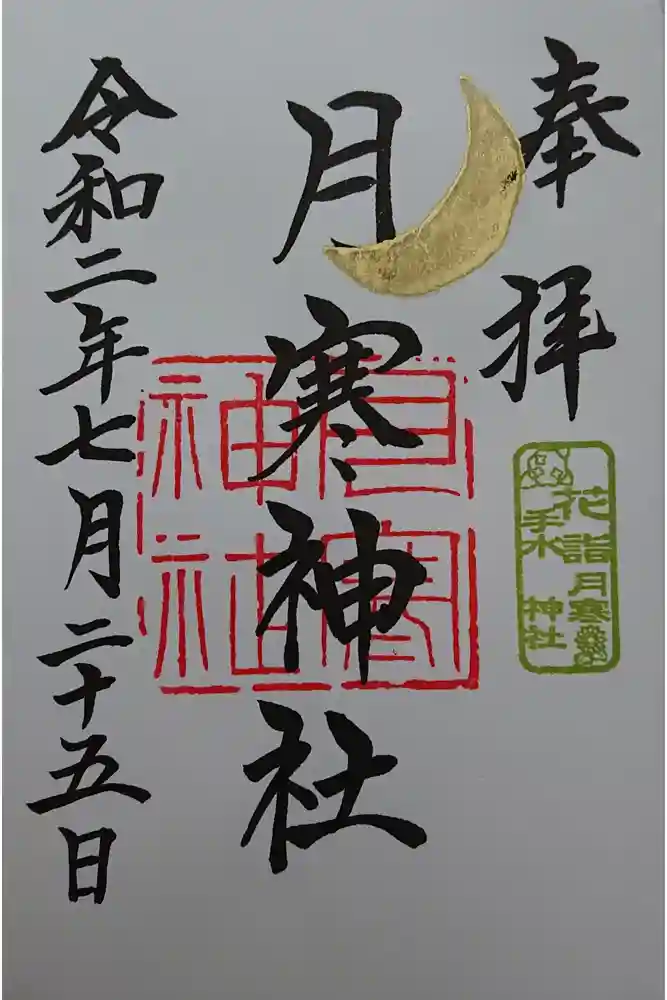 奉拝
花詣
手水
月寒
神社
月寒神社
月寒
神社
令和二年七月二十五日